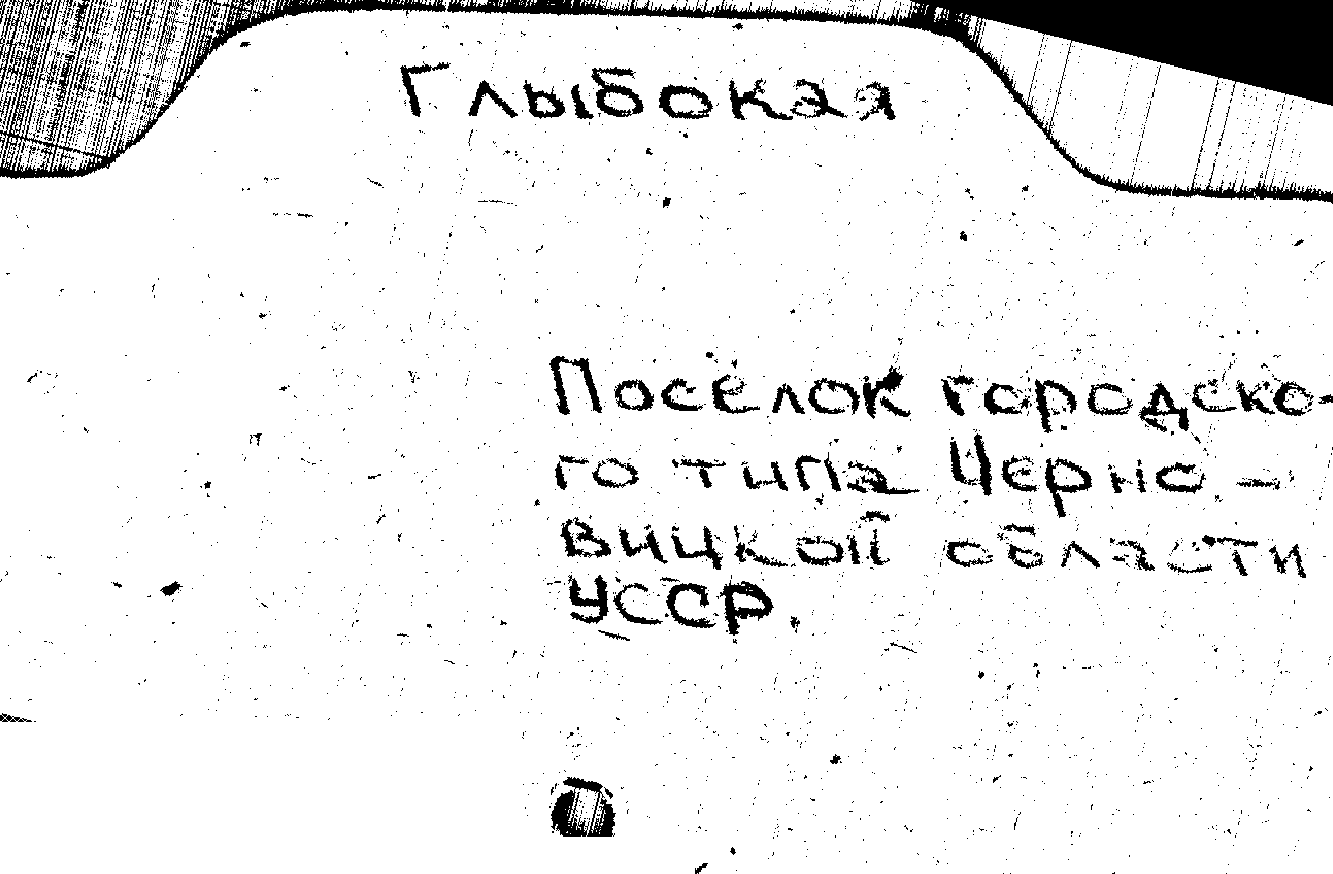 Глыбокая
Поселок городско-
го типа Черно-
вицкой области
УССР.